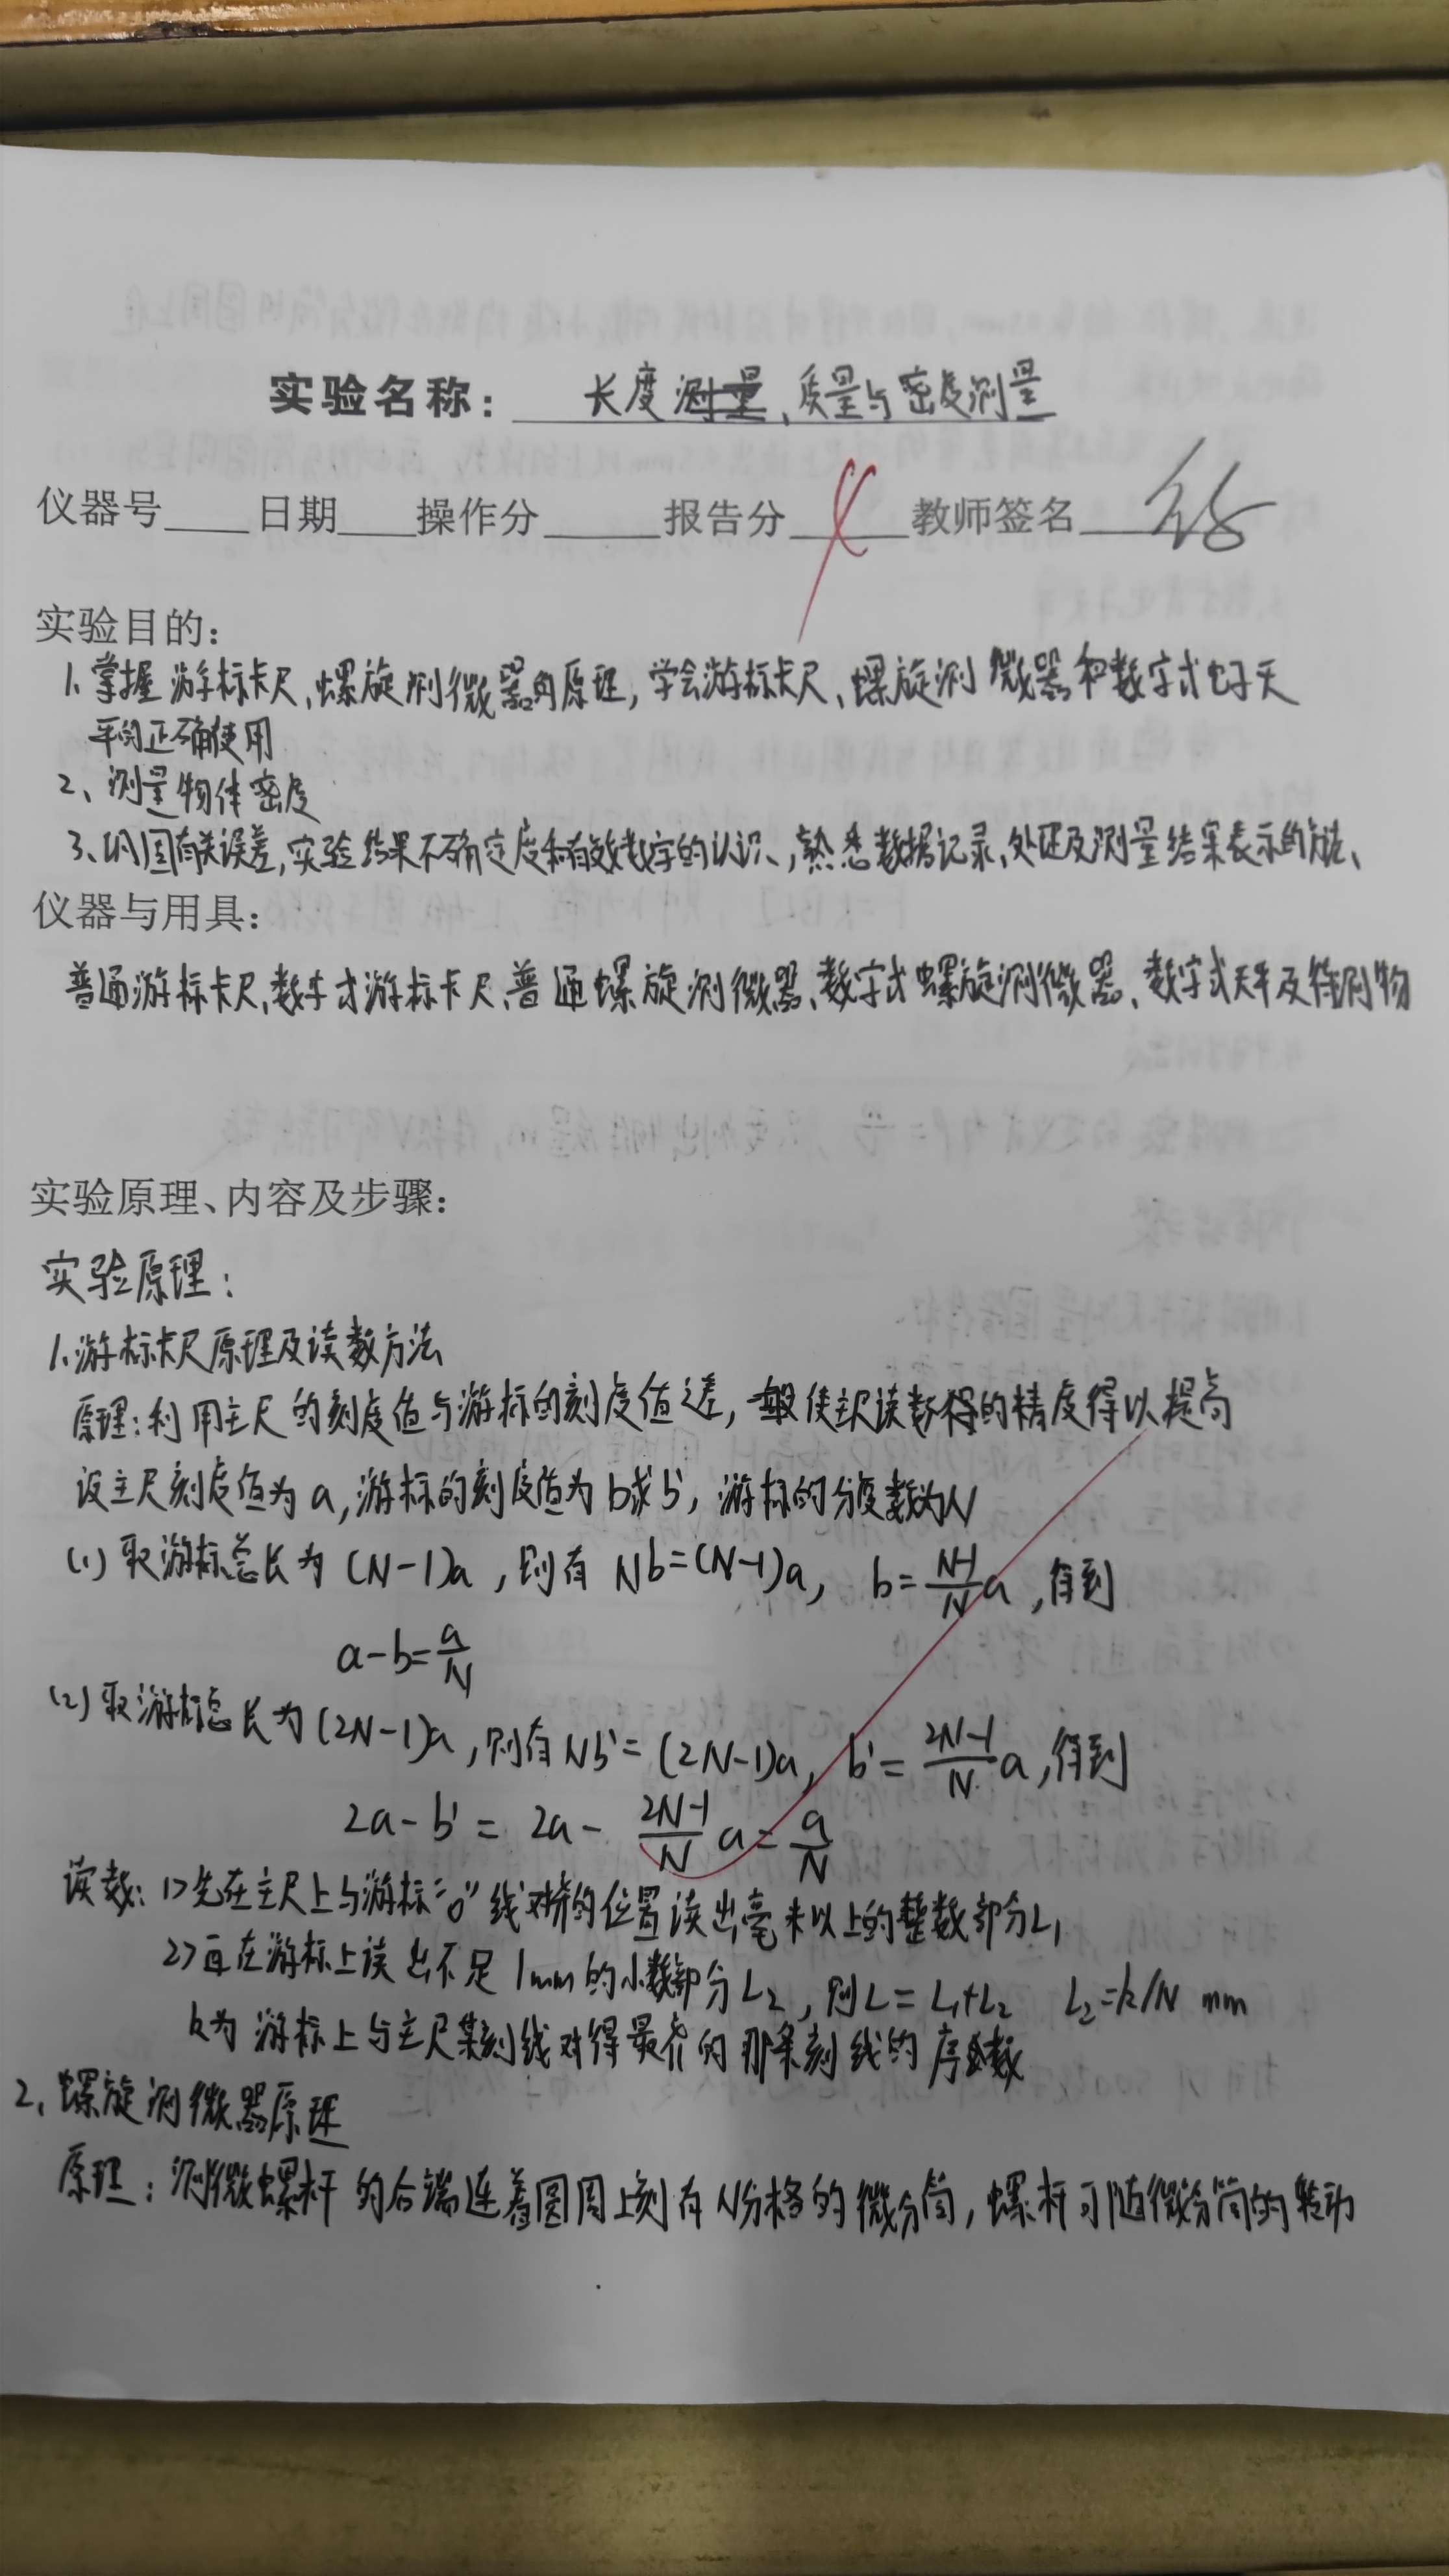 实验名称：长度测量、质量与密度测量
仪器号____日期____操作分____报告分____教师签名____
实验目的：
1、掌握游标卡尺、螺旋测微器的原理，学会游标卡尺、螺旋测微器和数字式电子天
平的正确使用
2、测量物体密度
3、巩固有关误差，实验结果不确定度和有效数字的认识、，熟悉数据记录、处理及测量结果表示的方法、
仪器与用具：
普通游标卡尺、数字式游标卡尺、普通螺旋测微器、数字式螺旋测微器、数字式天平及待测物
实验原理、内容及步骤：
实验原理：
1、游标卡尺原理及读数方法
原理：利用主尺的刻度值与游标的刻度值之差，使主尺读数的精度得以提高
设主尺刻度值为a，游标的刻度值为b或b'，游标的分度数为N
(1) 取游标总长为(N-1)a，则有 Nb=(N-1)a， b=\frac{N-1}{N}a，得到
a-b=\frac{a}{N}
(2) 取游标总长为(2N-1)a，则有Nb'=(2N-1)a， b'=\frac{2N-1}{N}a，得到
2a-b'=2a-\frac{2N-1}{N}a=\frac{a}{N}
读数：1>先在主尺上与游标"0"线对齐的位置读出毫米以上的整数部分L₁
2>再在游标上读出不足1mm的小数部分L₂，则L=L₁+L₂ L₂=k/N mm
k为游标上与主尺某刻线对得最齐的那条刻线的序数
2、螺旋测微器原理
原理：测微螺杆的后端连着圆周上刻有N分格的微分筒，螺杆可随微分筒的转动